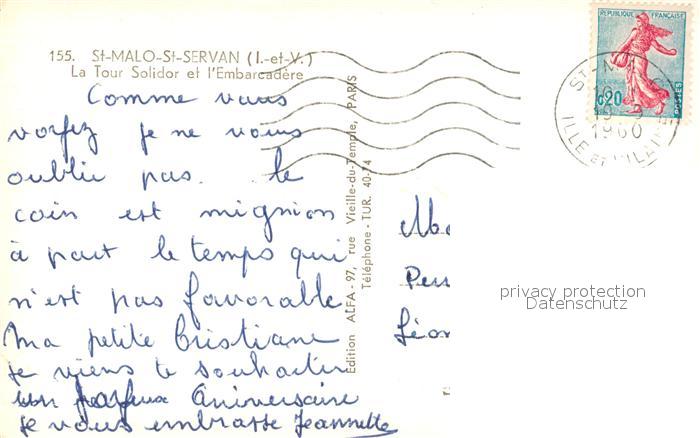 155. St-MALO-St-SERVAN (I.-et-V.)
La Tour Solidor et l'Embarcadère
Comme vous
voyez je ne vous
oublie pas. le
coin est mignion
à part le temps qui
n'est pas favorable
Ma petite Cristiane
je viens te souhaiter
un Aniversaire
je vous embrasse Jeannette
Edition ALFA - 97, rue Vieille-du-Temple, PARIS
Téléphone - TUR. 40-74
REPUBLIQUE FRANÇAISE
0,20
POSTES
ST-MALO
1960
ILLE et VILAINE
privacy protection
Datenschutz